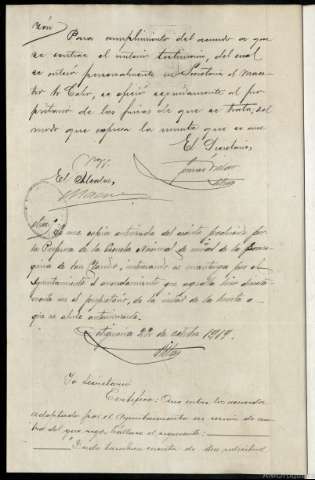 Para cumplimiento del acuerdo a que
se contrae el anterior testimonio, del cual
se enteró personalmente en Secretaría el Maes-
tro Sr. Calvo, se ofició seguidamente al pro-
pietario de las fincas de que se trata; del
modo que expresa la minuta que se une.
El Secretario,
El Alcalde,
una copia autorizada del escrito producido por
la Profesora de la Escuela Nacional de niñas de la
de San Claudio, interesando se mantenga por el
Ayuntamiento el arrendamiento que aquella hizo directa-
mente con el propietario, de la mitad de la huerta a
que se alude anteriormente.
22 de octubre 1917.
Yo Secretario
Certifico: Que entre los acuerdos
adoptados por el Ayuntamiento en sesión de cua-
tro del que rige, hállase el siguiente: